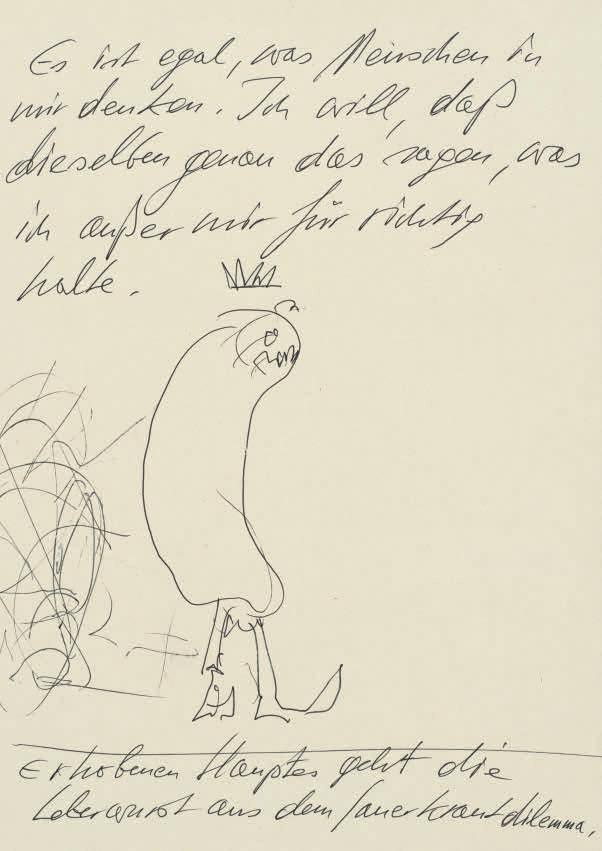 Es ist egal, was Menschen in
mir denken. Ich will, daß
dieselben genau das sagen, was
ich außer mir für richtig
halte.
Erhobenen Hauptes geht die
Leberwurst aus dem Sauerkrautdilemma.